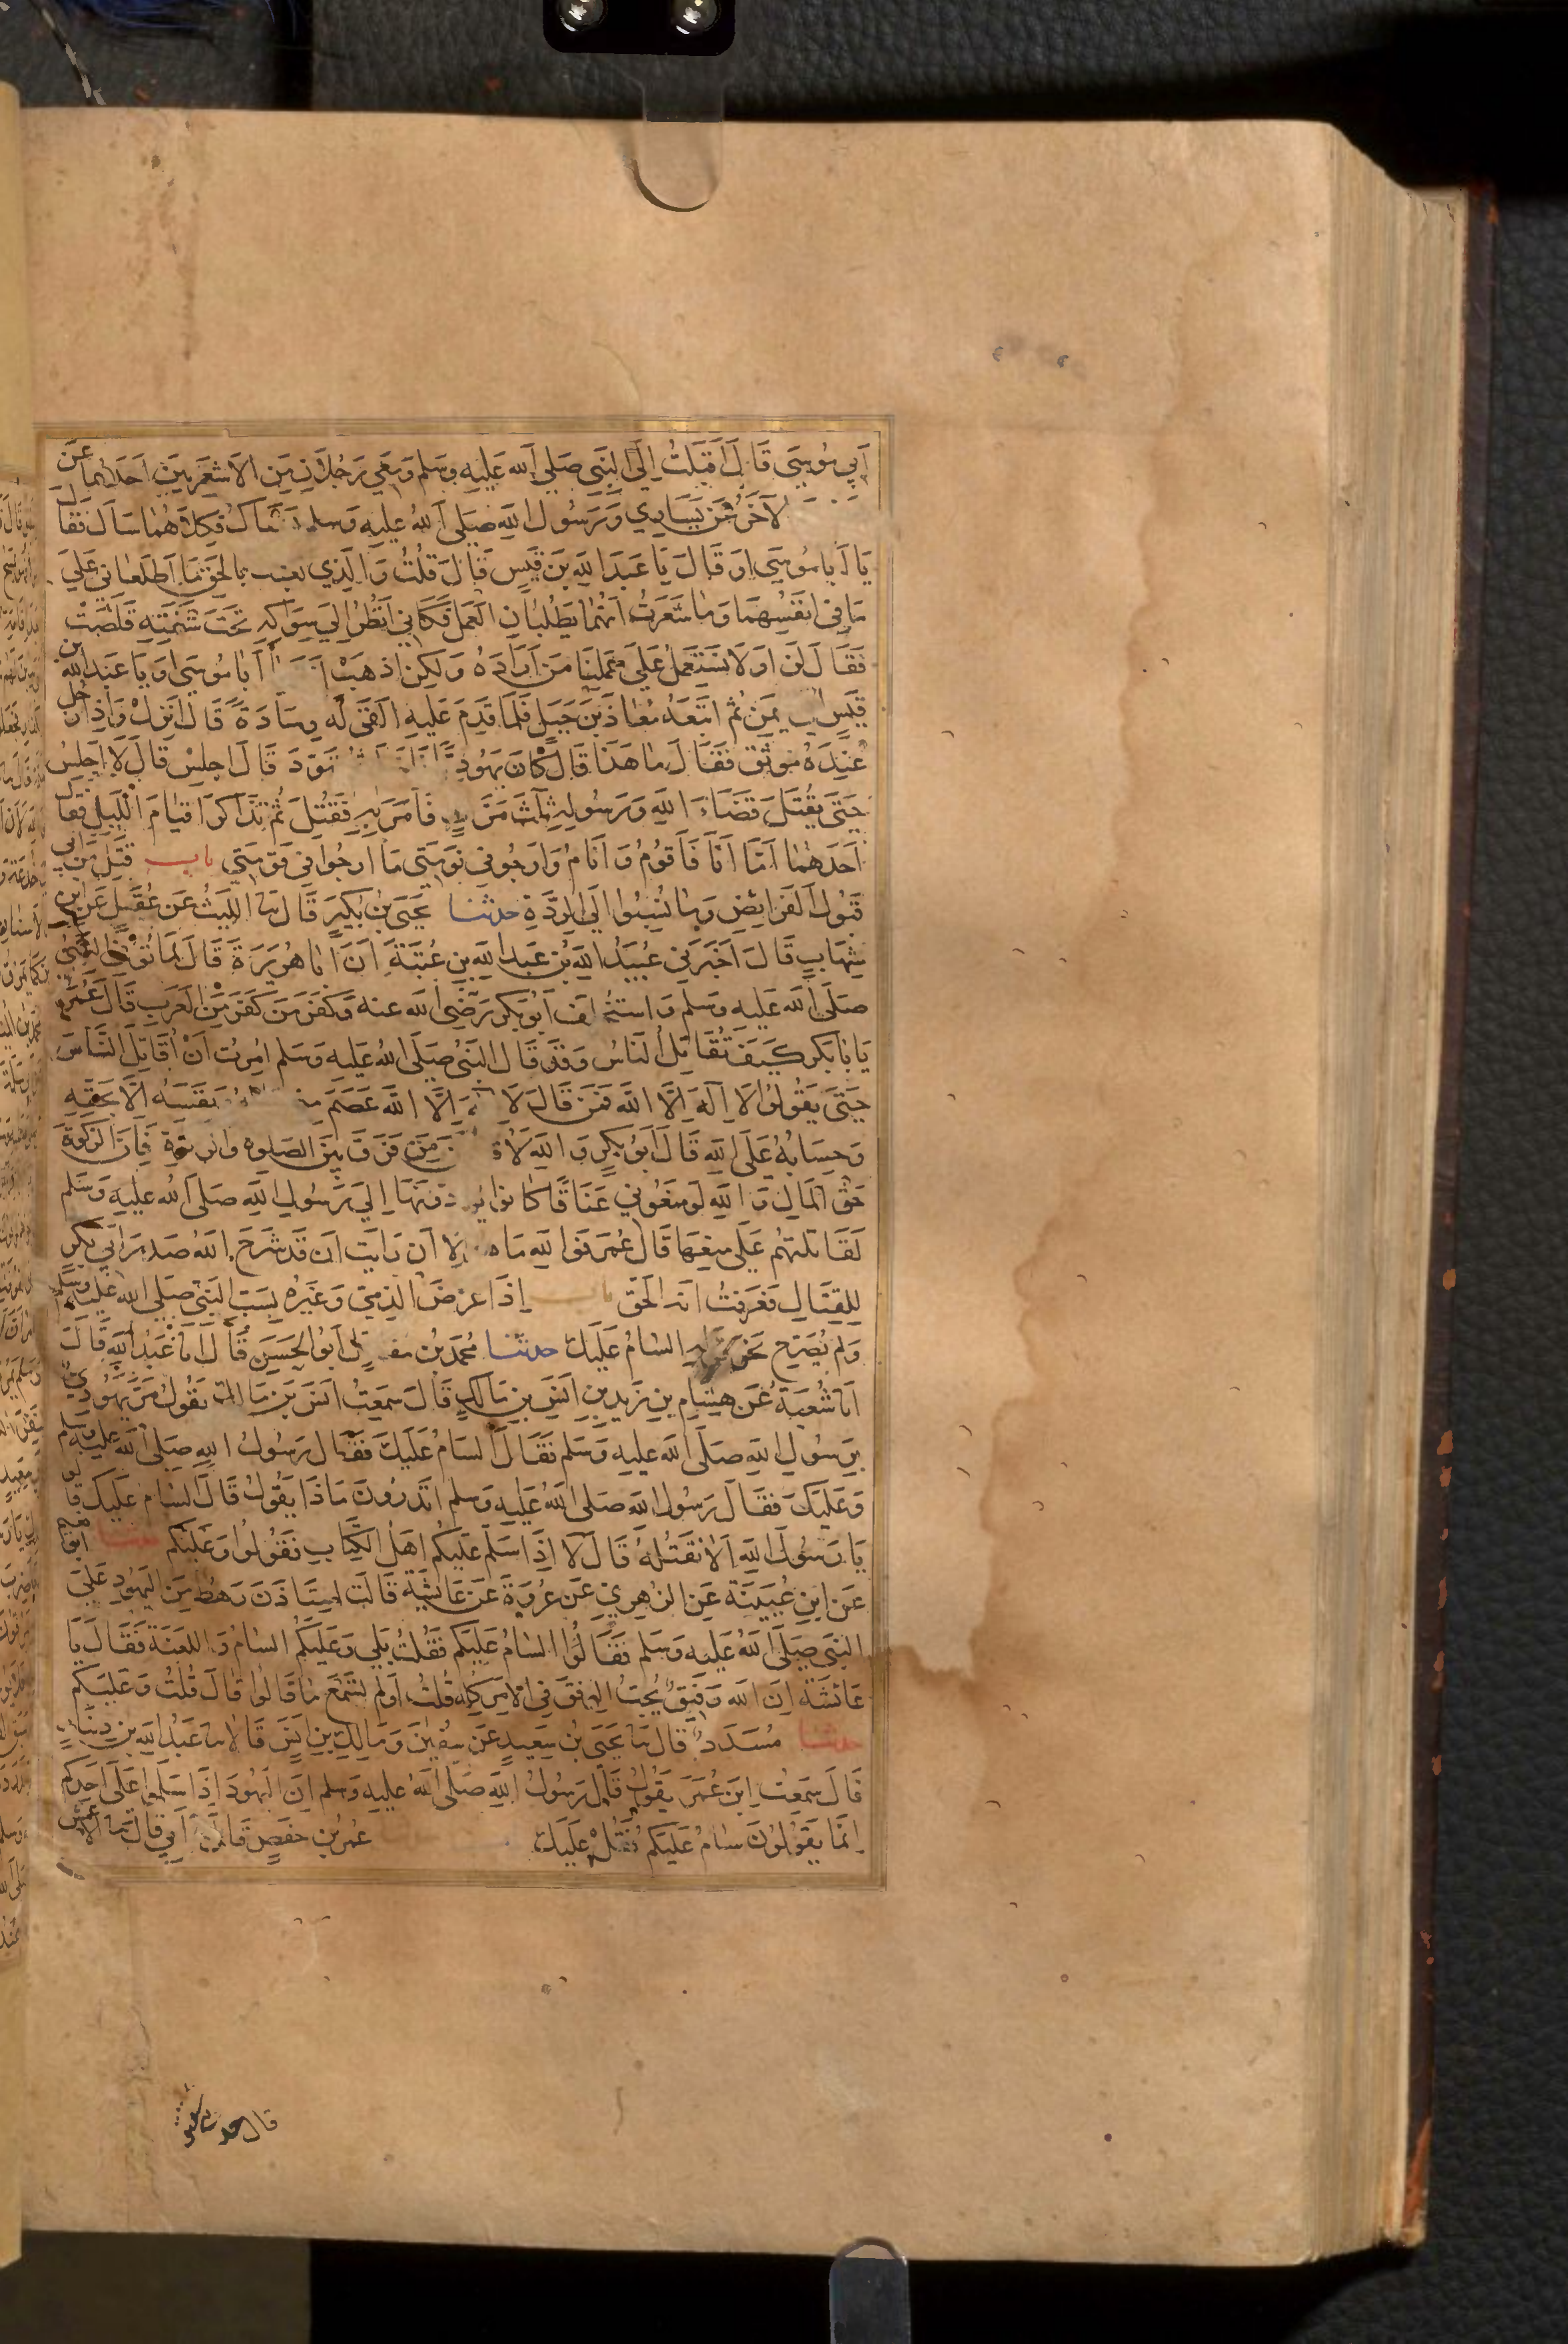 أبي موسى قال أقبلت إلى النبي صلى الله عليه وسلم ومعي رجلان من الأشعريين أحدهما عن
الآخر عن يساري ورسول الله صلى الله عليه وسلم يستاك فكلاهما سأل فقال
يا أبا موسى أو قال يا عبد الله بن قيس قال قلت والذي بعثك بالحق ما أطلعاني على
ما في أنفسهما وما شعرت أنهما يطلبان العمل فكأني أنظر إلى سواكه تحت شفته قلصت
فقال لن أو لا نستعمل على عملنا من أراده ولكن اذهب أنت يا أبا موسى أو يا عبد الله بن
قيس يمن ثم اتبعه معاذ بن جبل فلما قدم عليه ألقى له وسادة قال انزل وإذا رجل
عنده موثق فقال ما هذا قال كان يهوديا تهود قال اجلس قال لا أجلس
حتى يقتل قضاء الله ورسوله ثلاث مرات فأمر به فقتل ثم تذاكرا قيام الليل فقال
أحدهما أما أنا فأقوم وأنام وأرجو في نومتي ما أرجو في قومتي باب قتل من أبى
قبول الفرائض وما نسبوا إلى الردة حدثنا يحيى بن بكير قال نا الليث عن عقيل عن ابن
شهاب قال أخبرني عبيد الله بن عبد الله بن عتبة أن أبا هريرة قال لما توفي النبي
صلى الله عليه وسلم واستخلف أبو بكر رضي الله عنه وكفر من كفر من العرب قال عمر
يا أبا بكر كيف تقاتل الناس وقد قال النبي صلى الله عليه وسلم أمرت أن أقاتل الناس
حتى يقولوا لا إله إلا الله فمن قال لا إله إلا الله عصم نفسه إلا بحقه
وحسابه على الله قال أبو بكر والله من فرق بين الصلوة والزكوة فإن الزكوة
حق المال والله لو منعوني عناقا كانوا يؤدونها إلى رسول الله صلى الله عليه وسلم
لقاتلتهم على منعها قال عمر فوالله ما هو إلا أن رأيت أن قد شرح الله صدر أبي بكر
للقتال فعرفت أنه الحق باب إذا عرض الذمي وغيره بسب النبي صلى الله عليه وسلم
ولم يصرح نحو قوله السام عليك حدثنا محمد بن مقاتل أبو الحسن قال أنا عبد الله قال
أنا شعبة عن هشام بن زيد بن أنس بن مالك قال سمعت أنس بن مالك يقول مر يهودي
برسول الله صلى الله عليه وسلم فقال السام عليك فقال رسول الله صلى الله عليه وسلم
وعليك فقال رسول الله صلى الله عليه وسلم أتدرون ماذا يقول قال السام عليك قالو
يا رسول الله ألا نقتله قال لا إذا سلم عليكم أهل الكتاب فقولوا وعليكم حدثنا أبو نعيم
عن ابن عيينة عن الزهري عن عروة عن عائشة قالت استأذن رهط من اليهود على
النبي صلى الله عليه وسلم فقالوا السام عليكم فقلت بلى وعليكم السام واللعنة فقال يا
عائشة إن الله رفيق يحب الرفق في الأمر كله قلت أولم تسمع ما قالوا قال قلت وعليكم
حدثنا مسدد قال نا يحيى بن سعيد عن سفين ومالك بن أنس قالا نا عبد الله بن دينار
قال سمعت ابن عمر يقول قال رسول الله صلى الله عليه وسلم إن اليهود إذا سلموا على أحدكم
إنما يقولون سام عليكم فقل عليك عمر بن حفص قال نا أبي قال نا الأعمش
قال حدثني شقيق